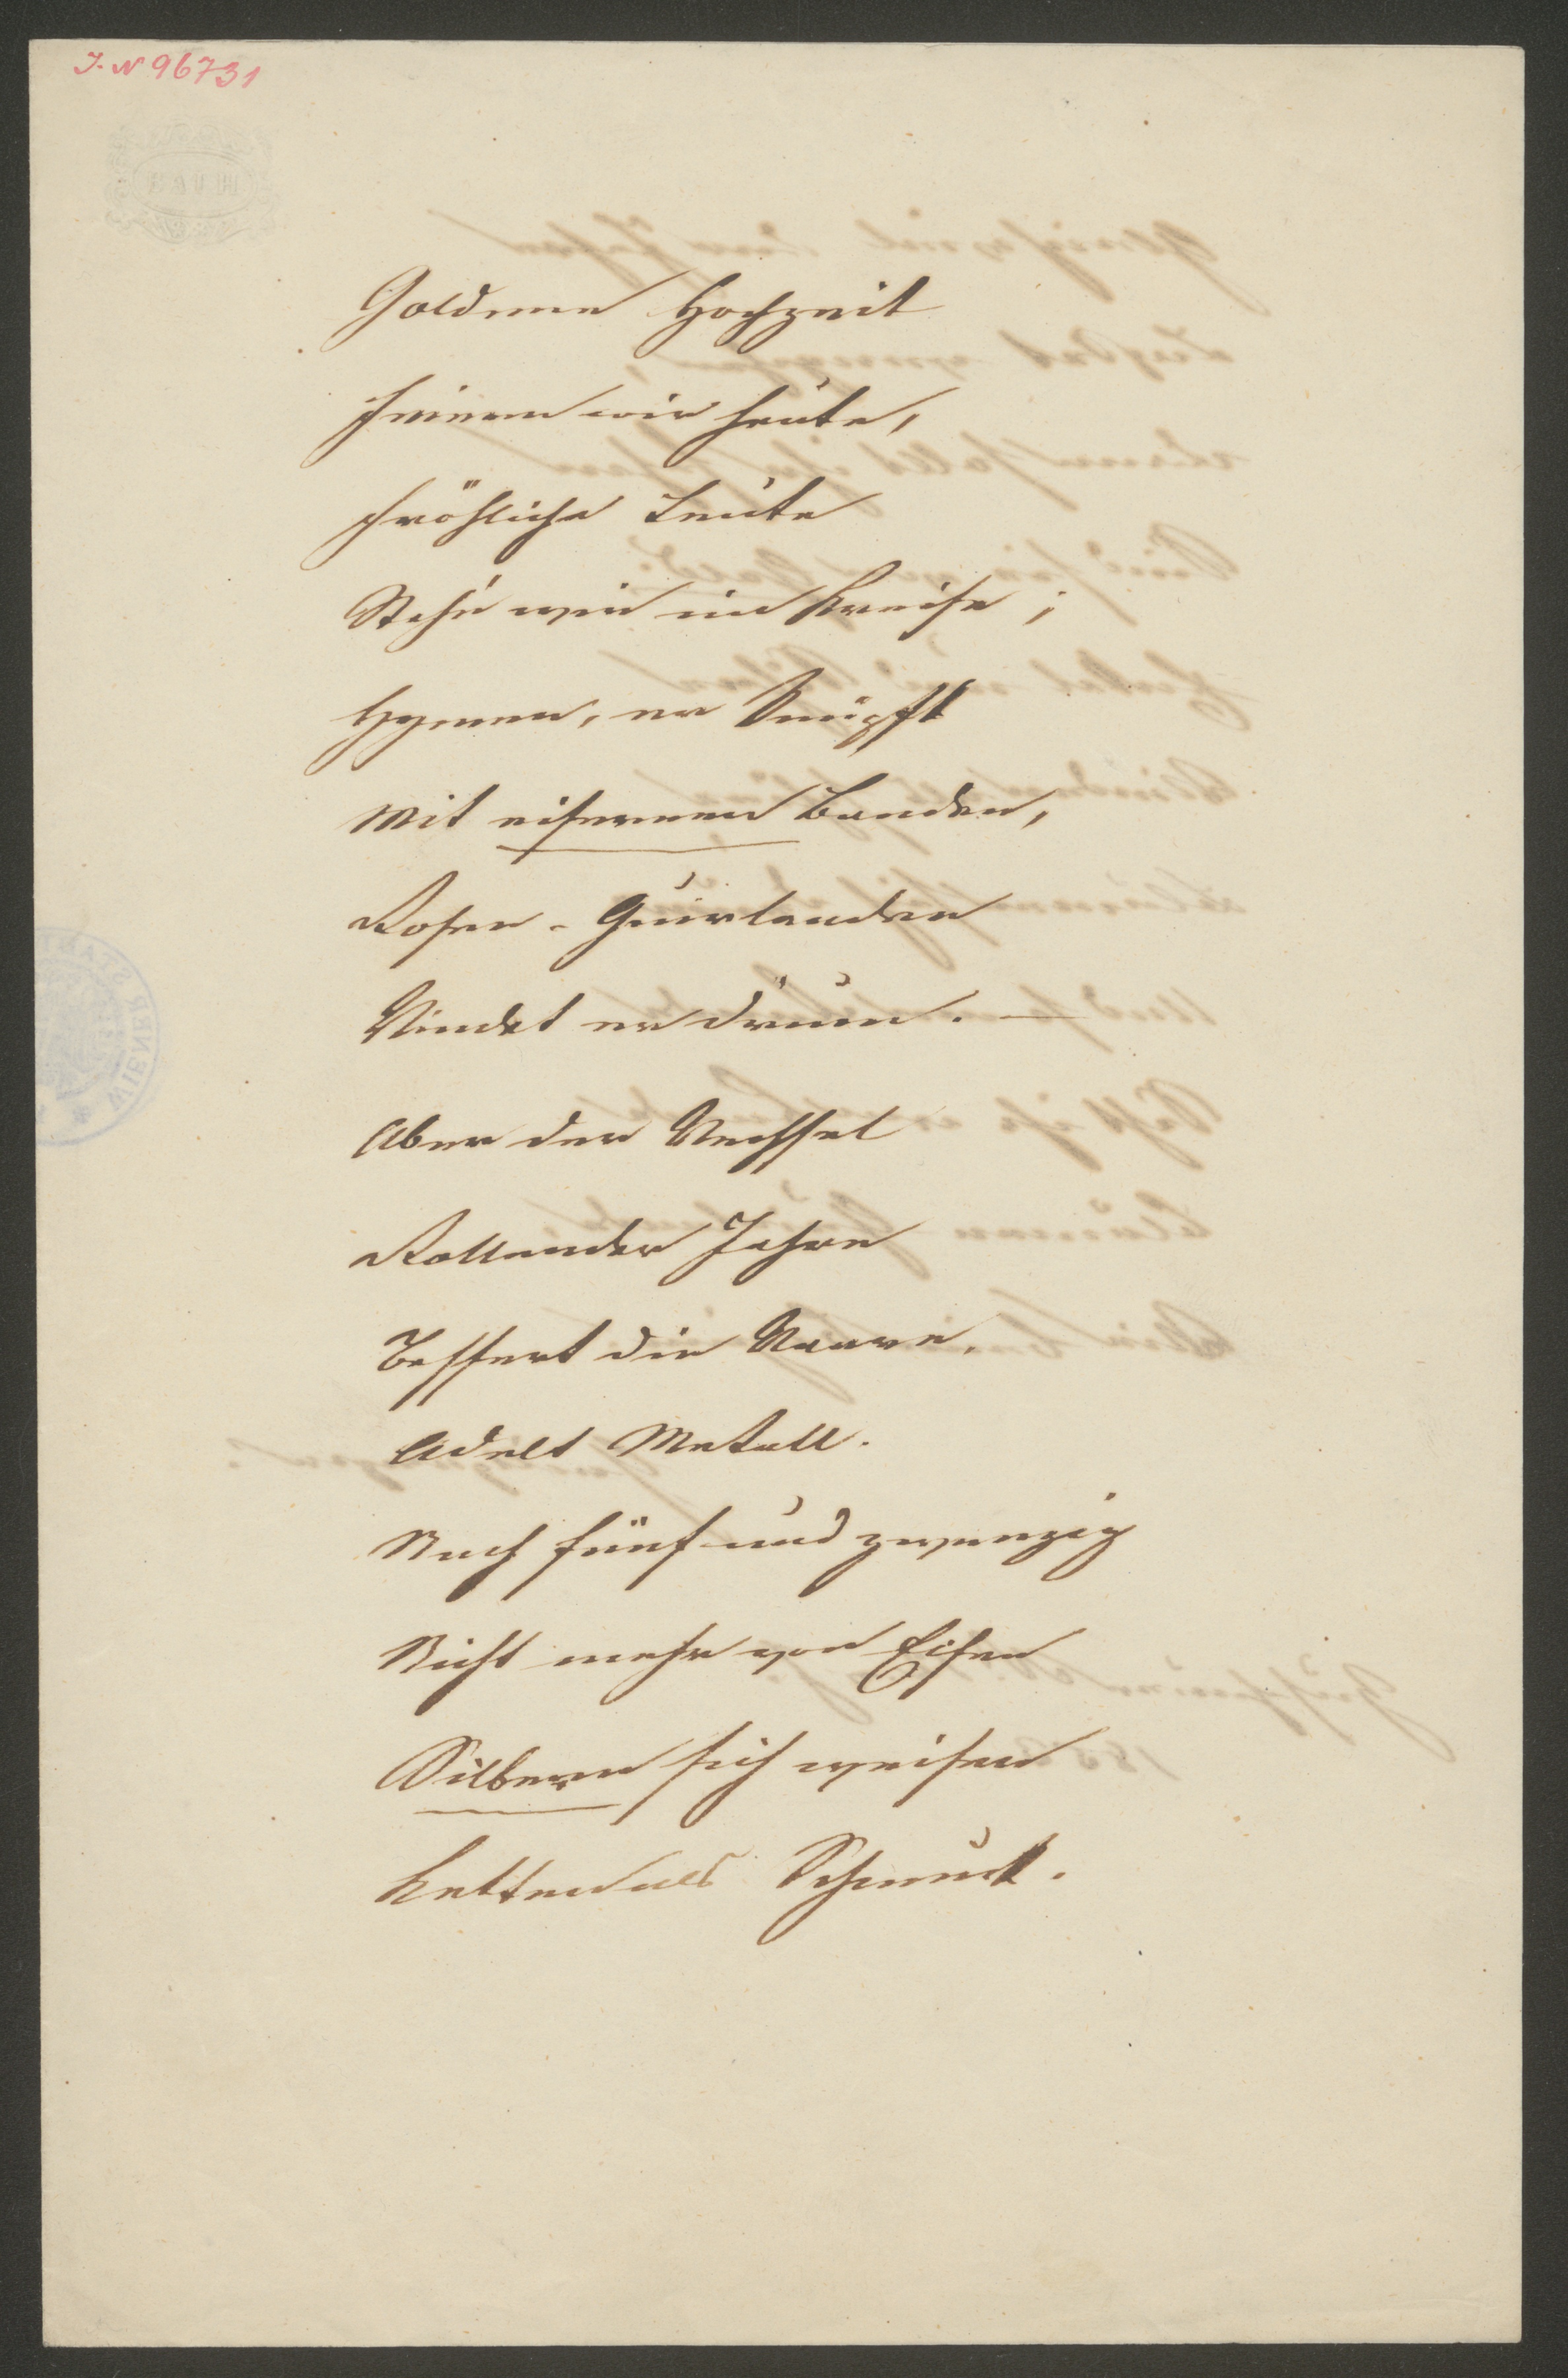 J. N 96731
BATH
Goldene Hochzeit
feiern wir heute,
fröhliche Leute
Steh'n wir im Kreise;
Hymen, er knüpft
Mit eisernen Banden,
Rosen-Guirlanden
Windet er drum. —
Aber der Wechsel
Rollender Jahre
Bessert die Waare,
Adelt Metall.
Nach fünf und zwanzig
Nicht mehr von Eisen
Silbern sich weisen
Ketten als Schmuck.